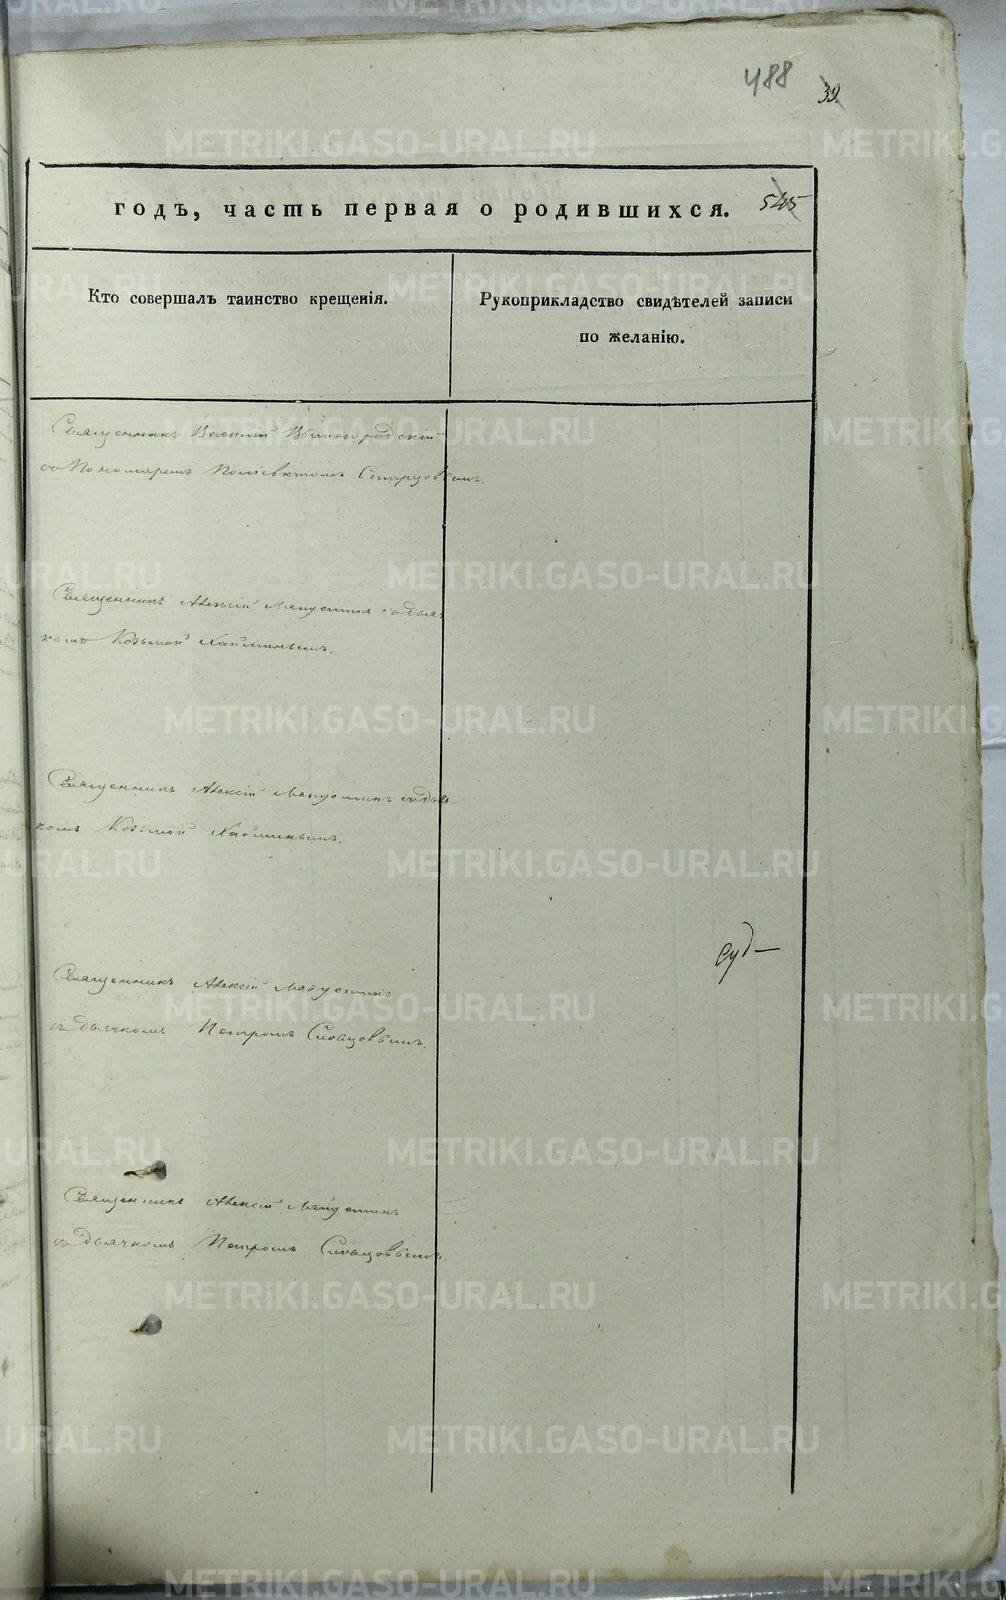 488
39
годъ, часть первая о родившихся.
545
Кто совершалъ таинство крещенія.
Рукоприкладство свидѣтелей записи
по желанію.
Священникъ Василій
съ Пономаремъ Поліевктомъ
Священникъ Алексій Ляпустинъ съ дьяч
комъ Козьмой
Священникъ Алексій Ляпустинъ съ дьяч
комъ Козьмой
Священникъ Алексій Ляпустинъ
съ дьячкомъ Петромъ Словцовымъ.
Священникъ Алексій Ляпустинъ
съ дьячкомъ Петромъ Словцовымъ.
METRIKI.GASO-URAL.RU